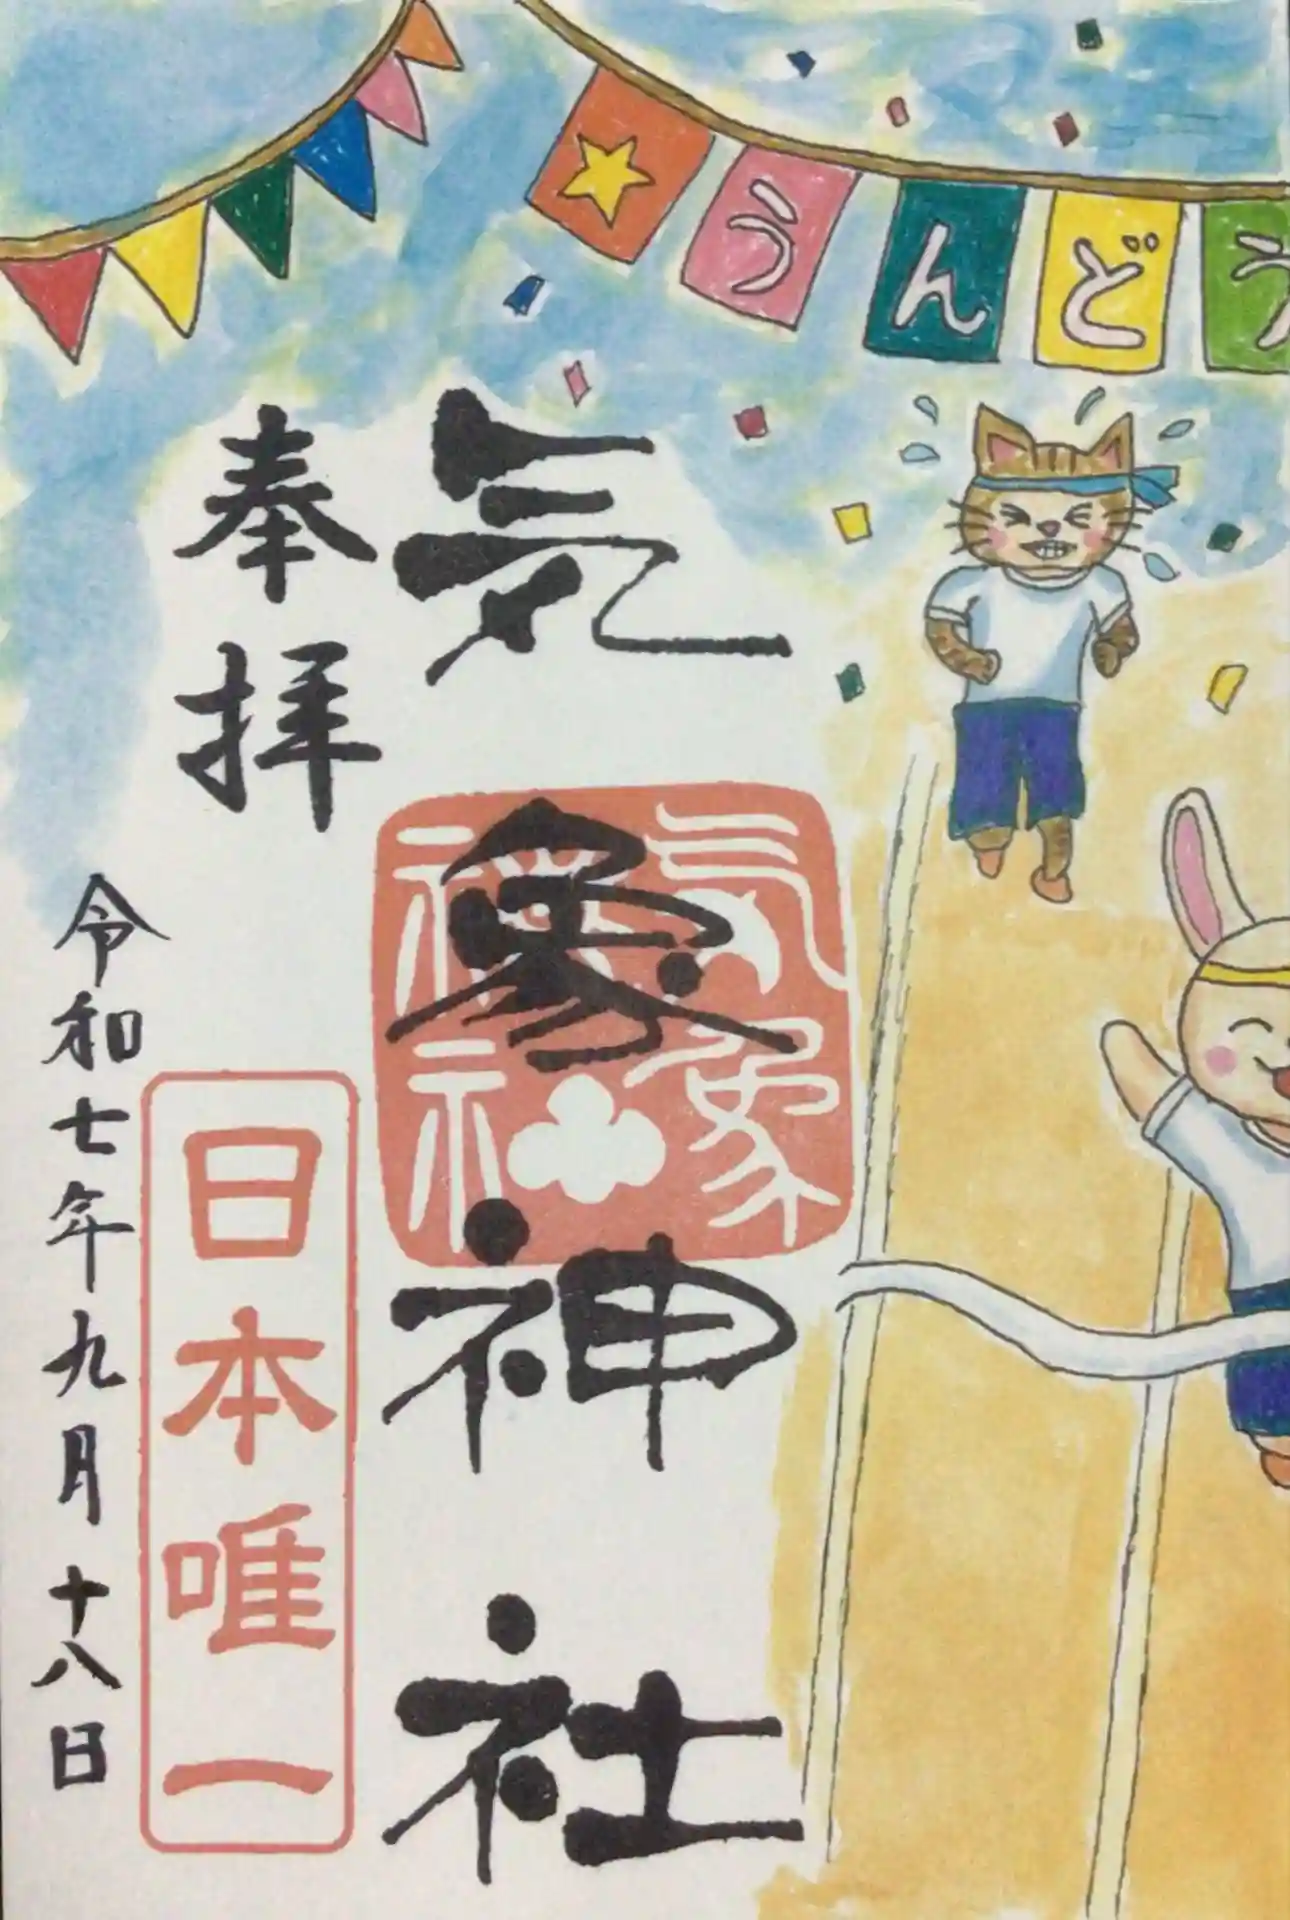 うんどう
気象神社
気象神社
奉拝
日本唯一
令和七年九月十八日